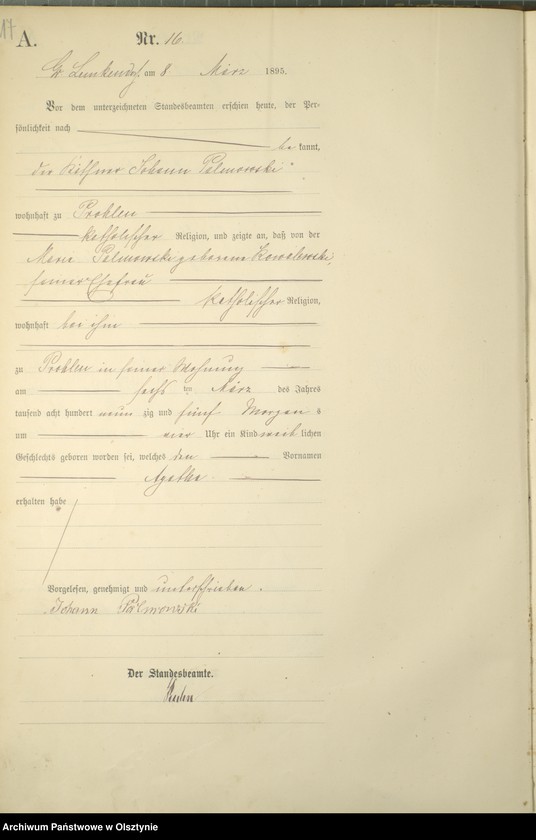 17
A.
Nr. 16
Gr. Lemkendorf, am 8 März 1895.
Vor dem unterzeichneten Standesbeamten erschien heute, der Per-
sönlichkeit nach
be kannt,
der Käthner Johann Palmowski
wohnhaft zu Prohlen
katholischer Religion, und zeigte an, daß von der
Marie Palmowski geborene Kowalewski,
seiner Ehefrau
katholischer Religion,
wohnhaft bei ihm
zu Prohlen in seiner Wohnung
am sechs ten März des Jahres
tausend acht hundert neun zig und fünf Morgen s
um vier Uhr ein Kind weib lichen
Geschlechts geboren worden sei, welches den Vornamen
Agathe
erhalten habe
Vorgelesen, genehmigt und unterschrieben.
Johann Palmowski
Der Standesbeamte.
Archiwum Państwowe w Olsztynie